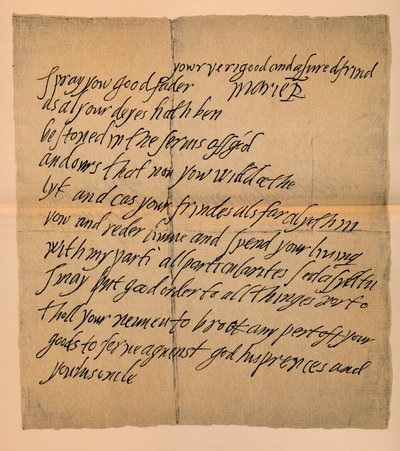 yowr veri good and asured frind
I pray yow good fader MARIE R
as al your deyes hath ben
bestoued in the seruis off god
and ours that nou you wilbe the
lyk and caus your frindes als far as lyeth in
yow and and spend your living
with my parti all particularites
I may put good order to all thinges to
tholl your neuueu to brook any pert off your
goods to serue against god his prences and
you his oncle